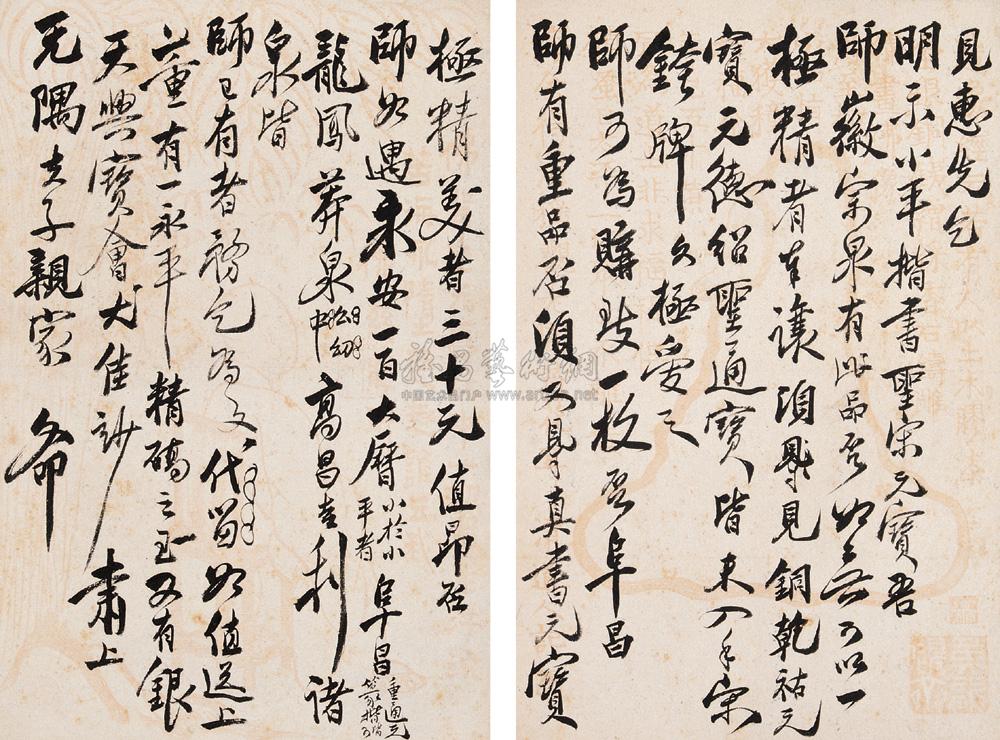 見惠先乞
明示小平楷書聖宋元寶吾
師徽宗泉有此品否如無可以一
極精者奉讓頃見銅乾祐元
寶元德紹聖通寶皆未入手宋
銙牌文極愛之
師可為購致一枚否阜昌
師有重品否須又見真書元寶
極精美者三十元值昂否
師如遇永安一百大曆小於小平者阜昌重通元寶楷皆可
龍鳳莽泉中 幼 高昌吉利諸
泉皆
師已有者務乞為文代留如值送上
六畫有一永平精磚言玉又有銀
天興寶會尤佳妙 肅上
无隅夫子親家 命
中国艺术品门户 www.artxun.net